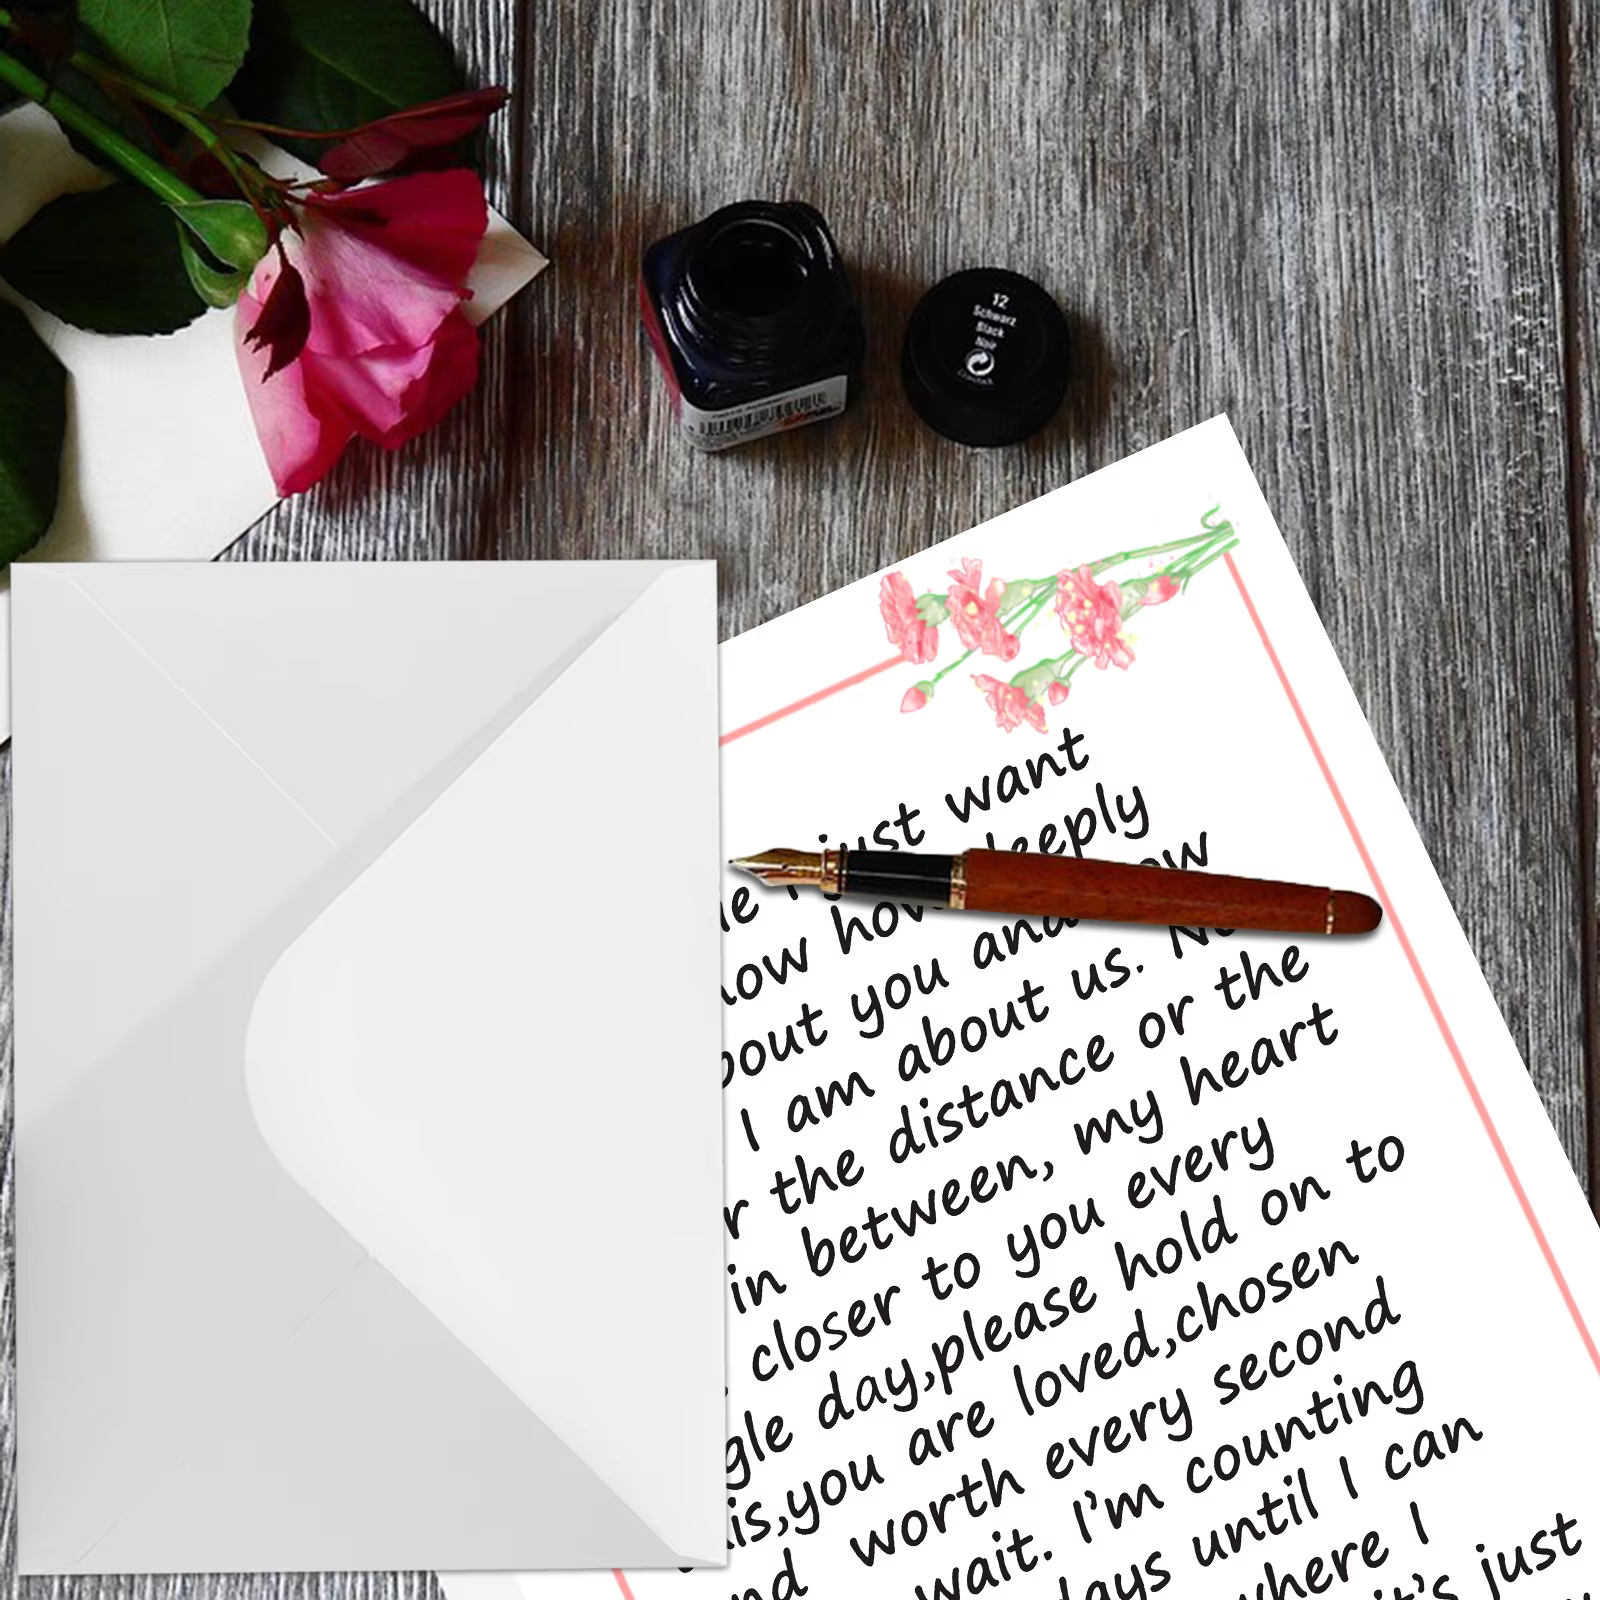 12
Schwarz
Black
Noir
I just want
how deeply
about you and how
I am about us. No
the distance or the
in between, my heart
closer to you every
day,please hold on to
you are loved,chosen
worth every second
wait. I'm counting
days until I can
where I
it's just